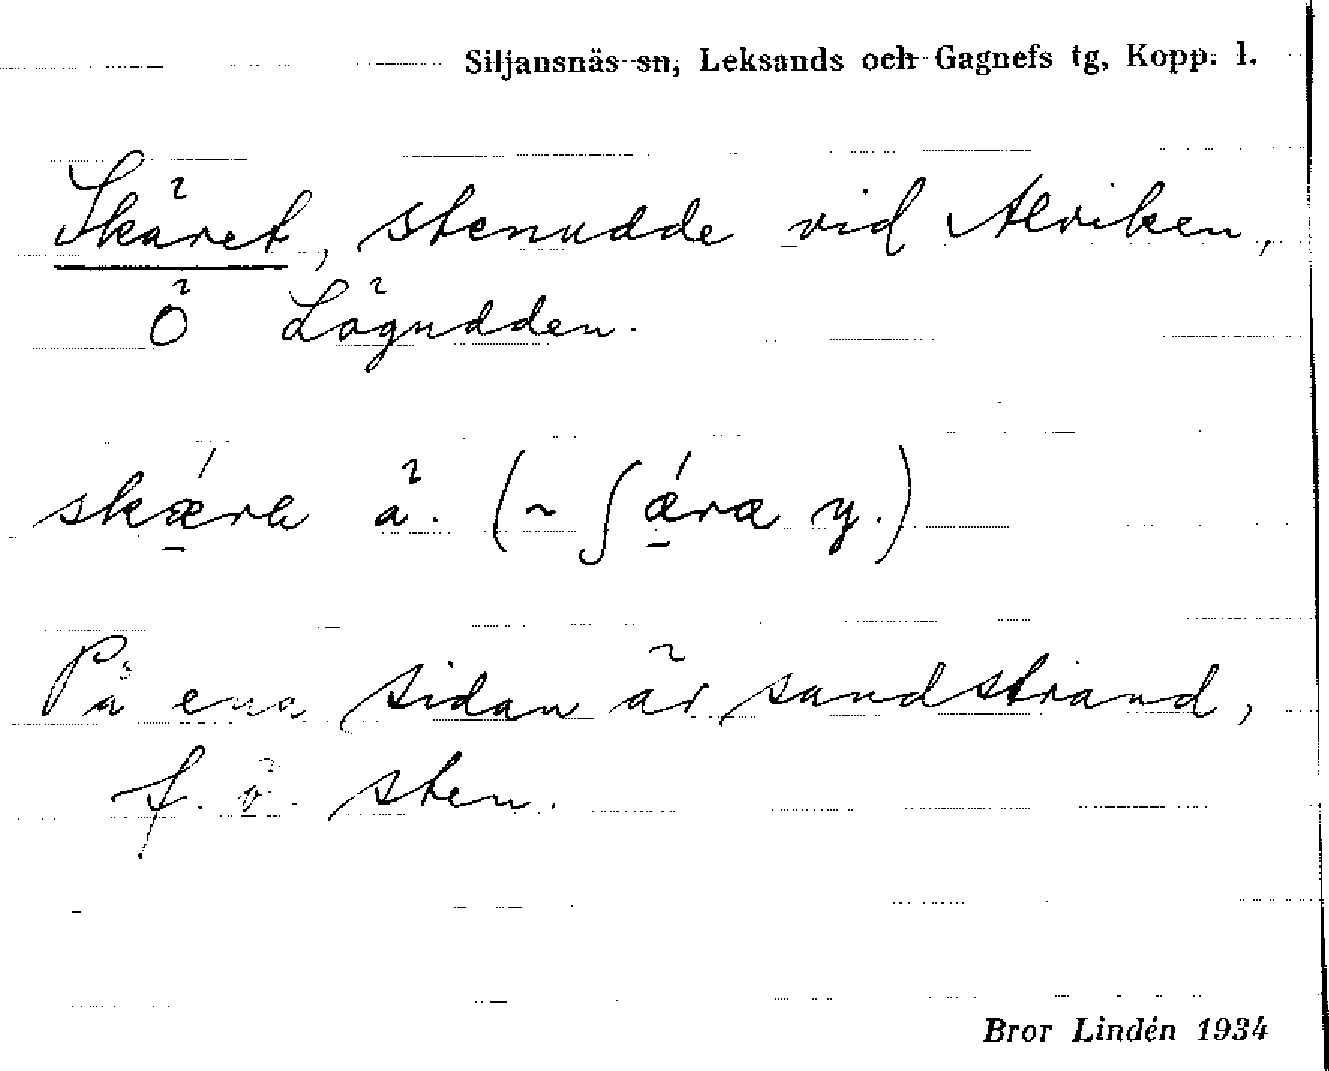 Siljansnäs sn, Leksands och Gagnefs tg, Kopp. l.
Skäret, stenudde vid Alviken,
Ö Lögudden.
skǽra ä. (~ ʃǽra y.)
På ena sidan är sandstrand,
f. ö. sten.
Bror Lindén 1934